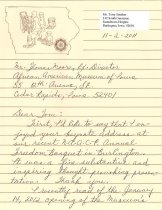 11-2-2011
Mr. Tom Moore, Ex. Director
African American Museum of Iowa
55 12th Avenue, S.
Cedar Rapids, Iowa 52401
Dear Tom:
First, I'd like to say that I en-
joyed your keynote address at
our recent N.A.A.C.P. Annual
Freedom Banquet in Burlington.
It was a fine substantial and
inspiring thought provoking presen-
tation. Thank you.
I recently read of the January
14, 2012 opening of the Museum's